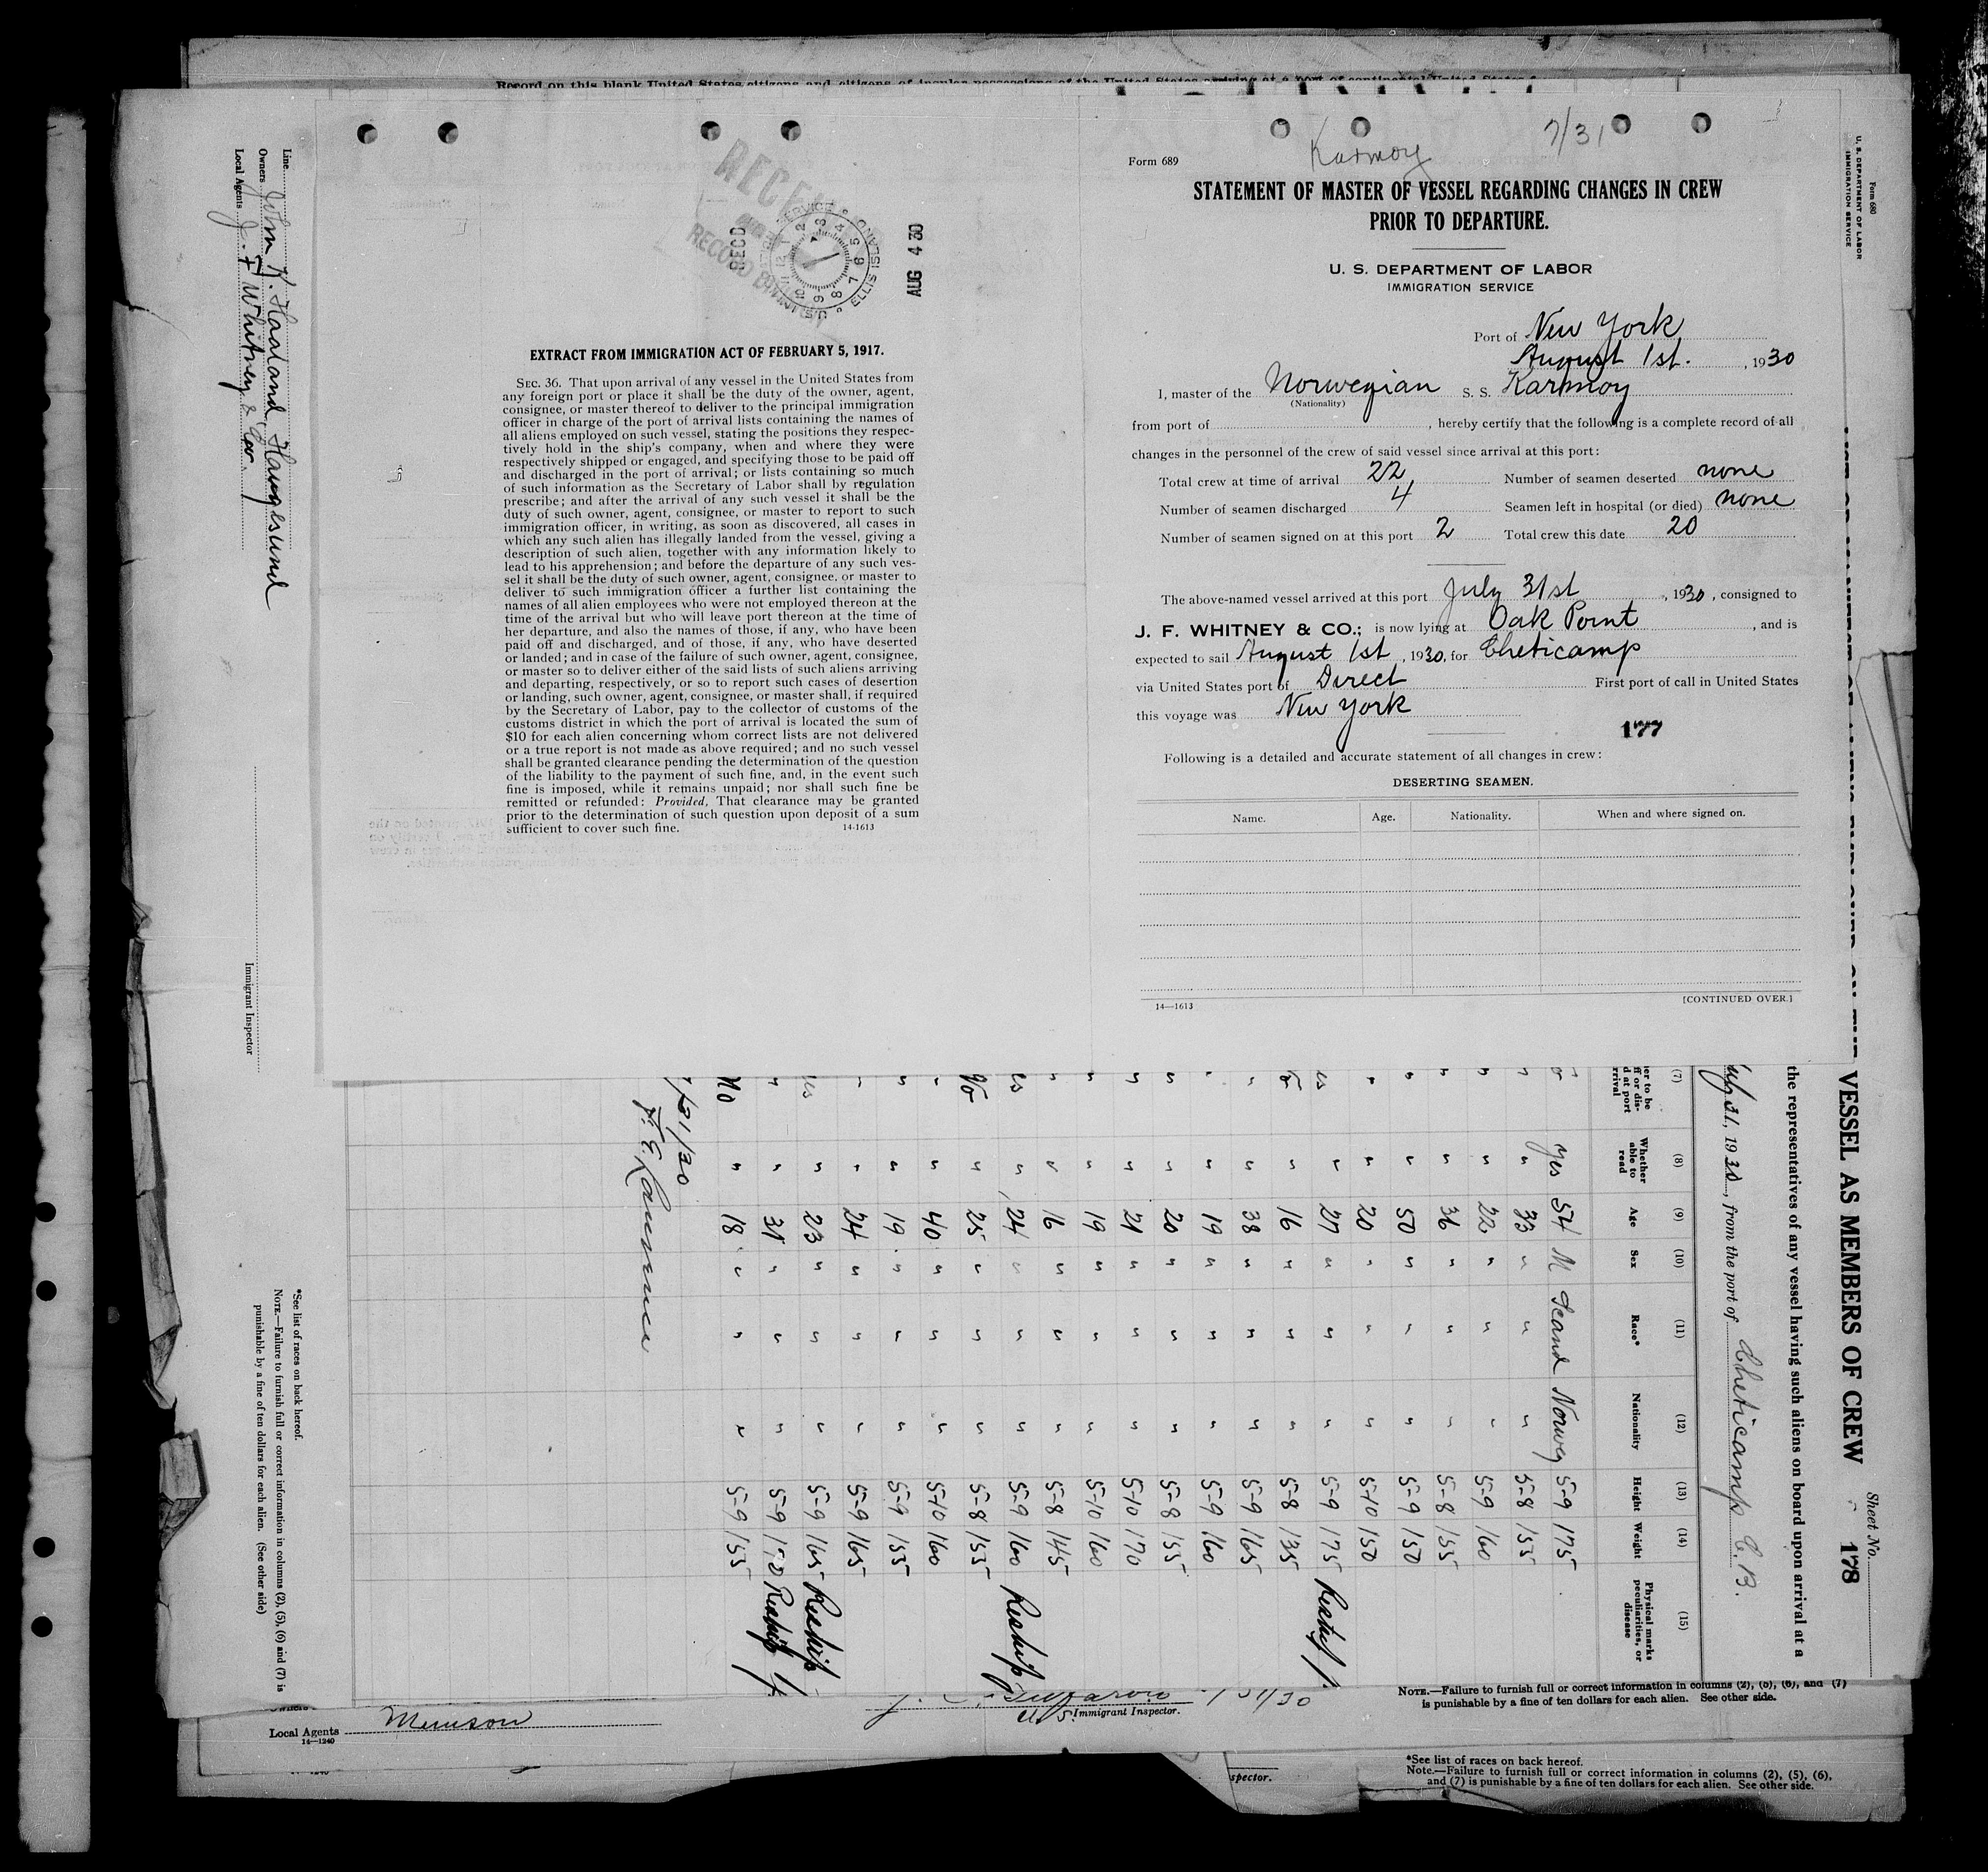 Record on this blank United States citizens and citizens of insular possessions of the United States arriving at a port of continental United States
Karmoy
7/31
Form 689
STATEMENT OF MASTER OF VESSEL REGARDING CHANGES IN CREW
PRIOR TO DEPARTURE.
U. S. DEPARTMENT OF LABOR
IMMIGRATION SERVICE
Port of New York
August 1st. , 1930
I, master of the Norwegian S. S. Karmoy
(Nationality)
from port of , hereby certify that the following is a complete record of all
changes in the personnel of the crew of said vessel since arrival at this port:
Total crew at time of arrival 22 Number of seamen deserted none
Number of seamen discharged 4 Seamen left in hospital (or died) none
Number of seamen signed on at this port 2 Total crew this date 20
The above-named vessel arrived at this port July 31st , 1930 , consigned to
J. F. WHITNEY & CO.; is now lying at Oak Point , and is
expected to sail August 1st , 1930, for Cheticamp
via United States port of Direct First port of call in United States
this voyage was New York
177
Following is a detailed and accurate statement of all changes in crew:
DESERTING SEAMEN.
Name. Age. Nationality. When and where signed on.
14—1613 [CONTINUED OVER.]
RECEIVED
RECORD
RECD
U.S. IMMIG. SERVICE ELLIS ISLAND
AUG 4 30
EXTRACT FROM IMMIGRATION ACT OF FEBRUARY 5, 1917.
SEC. 36. That upon arrival of any vessel in the United States from
any foreign port or place it shall be the duty of the owner, agent,
consignee, or master thereof to deliver to the principal immigration
officer in charge of the port of arrival lists containing the names of
all aliens employed on such vessel, stating the positions they respec-
tively hold in the ship's company, when and where they were
respectively shipped or engaged, and specifying those to be paid off
and discharged in the port of arrival; or lists containing so much
of such information as the Secretary of Labor shall by regulation
prescribe; and after the arrival of any such vessel it shall be the
duty of such owner, agent, consignee, or master to report to such
immigration officer, in writing, as soon as discovered, all cases in
which any such alien has illegally landed from the vessel, giving a
description of such alien, together with any information likely to
lead to his apprehension; and before the departure of any such ves-
sel it shall be the duty of such owner, agent, consignee, or master to
deliver to such immigration officer a further list containing the
names of all alien employees who were not employed thereon at the
time of the arrival but who will leave port thereon at the time of
her departure, and also the names of those, if any, who have been
paid off and discharged, and of those, if any, who have deserted
or landed; and in case of the failure of such owner, agent, consignee,
or master so to deliver either of the said lists of such aliens arriving
and departing, respectively, or so to report such cases of desertion
or landing, such owner, agent, consignee, or master shall, if required
by the Secretary of Labor, pay to the collector of customs of the
customs district in which the port of arrival is located the sum of
$10 for each alien concerning whom correct lists are not delivered
or a true report is not made as above required; and no such vessel
shall be granted clearance pending the determination of the question
of the liability to the payment of such fine, and, in the event such
fine is imposed, while it remains unpaid; nor shall such fine be
remitted or refunded: Provided, That clearance may be granted
prior to the determination of such question upon deposit of a sum
sufficient to cover such fine. 14-1613
Form 680
U. S. DEPARTMENT OF LABOR
IMMIGRATION SERVICE
Sheet No.
VESSEL AS MEMBERS OF CREW 178
the representatives of any vessel having such aliens on board upon arrival at a
31, 1930, from the port of Cheticamp C. B.
(7) (8) (9) (10) (11) (12) (13) (14) (15)
Whether able to read Age Sex Race* Nationality Height Weight Physical marks peculiarities, or disease
yes 54 M Scand Norway 5-9 175
" 33 " " " 5-8 155
" " 22 " " " 5-9 160
" " 36 " " " 5-8 155
" " 50 " " " 5-9 150
" " 20 " " " 5-10 150
" 27 " " " 5-9 175
" 16 " " " 5-8 135
" " 38 " " " 5-9 165
" " 19 " " " 5-9 160
" " 20 " " " 5-8 155
" " 21 " " " 5-10 170
" " 19 " " " 5-10 160
" " 16 " " " 5-8 145
" 24 " " " 5-9 160 Reship
No " 25 " " " 5-8 155
" " 40 " " " 5-10 160
" " 19 " " " 5-9 155
" " 24 " " " 5-9 165
" 23 " " " 5-9 165 Reship
" " 31 " " " 5-9 170 Reship
No " 18 " " " 5-9 155
7/31/30
Line
Owners John K. Haaland, Haugesund
Local Agents J. F. Whitney & Co.
Immigrant Inspector
*See list of races on back hereof.
NOTE.—Failure to furnish full or correct information in columns (2), (5), (6) and (7) is
punishable by a fine of ten dollars for each alien. (See other side)
Local Agents Munson
14—1240
U. S. Immigrant Inspector.
NOTE.—Failure to furnish full or correct information in columns (2), (5), (6), and (7)
is punishable by a fine of ten dollars for each alien. See other side.
spector.
*See list of races on back hereof.
Note.—Failure to furnish full or correct information in columns (2), (5), (6),
and (7) is punishable by a fine of ten dollars for each alien. See other side.